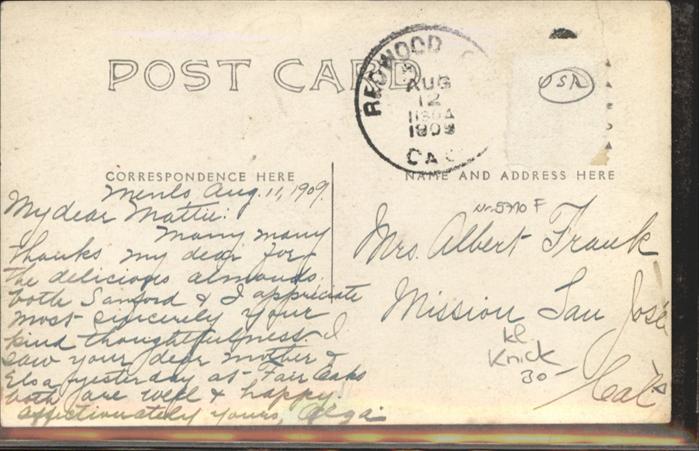 POST CARD
REDWOOD
AUG
12
1909
CAL
USA
CORRESPONDENCE HERE
NAME AND ADDRESS HERE
Menlo Aug. 11, 1909.
My dear Mattie:
Many many
thanks my dear for
the delicious almonds.
both Sanford & I appreciate
most sincerely your
kind thoughtfulness. I
saw your dear mother &
Elsa yesterday at Fair Oaks
both are well & happy.
Affectionately yours, Olga
5770 F
Mrs. Albert Frank
Mission San José
kl
Knick
30-
Cal's